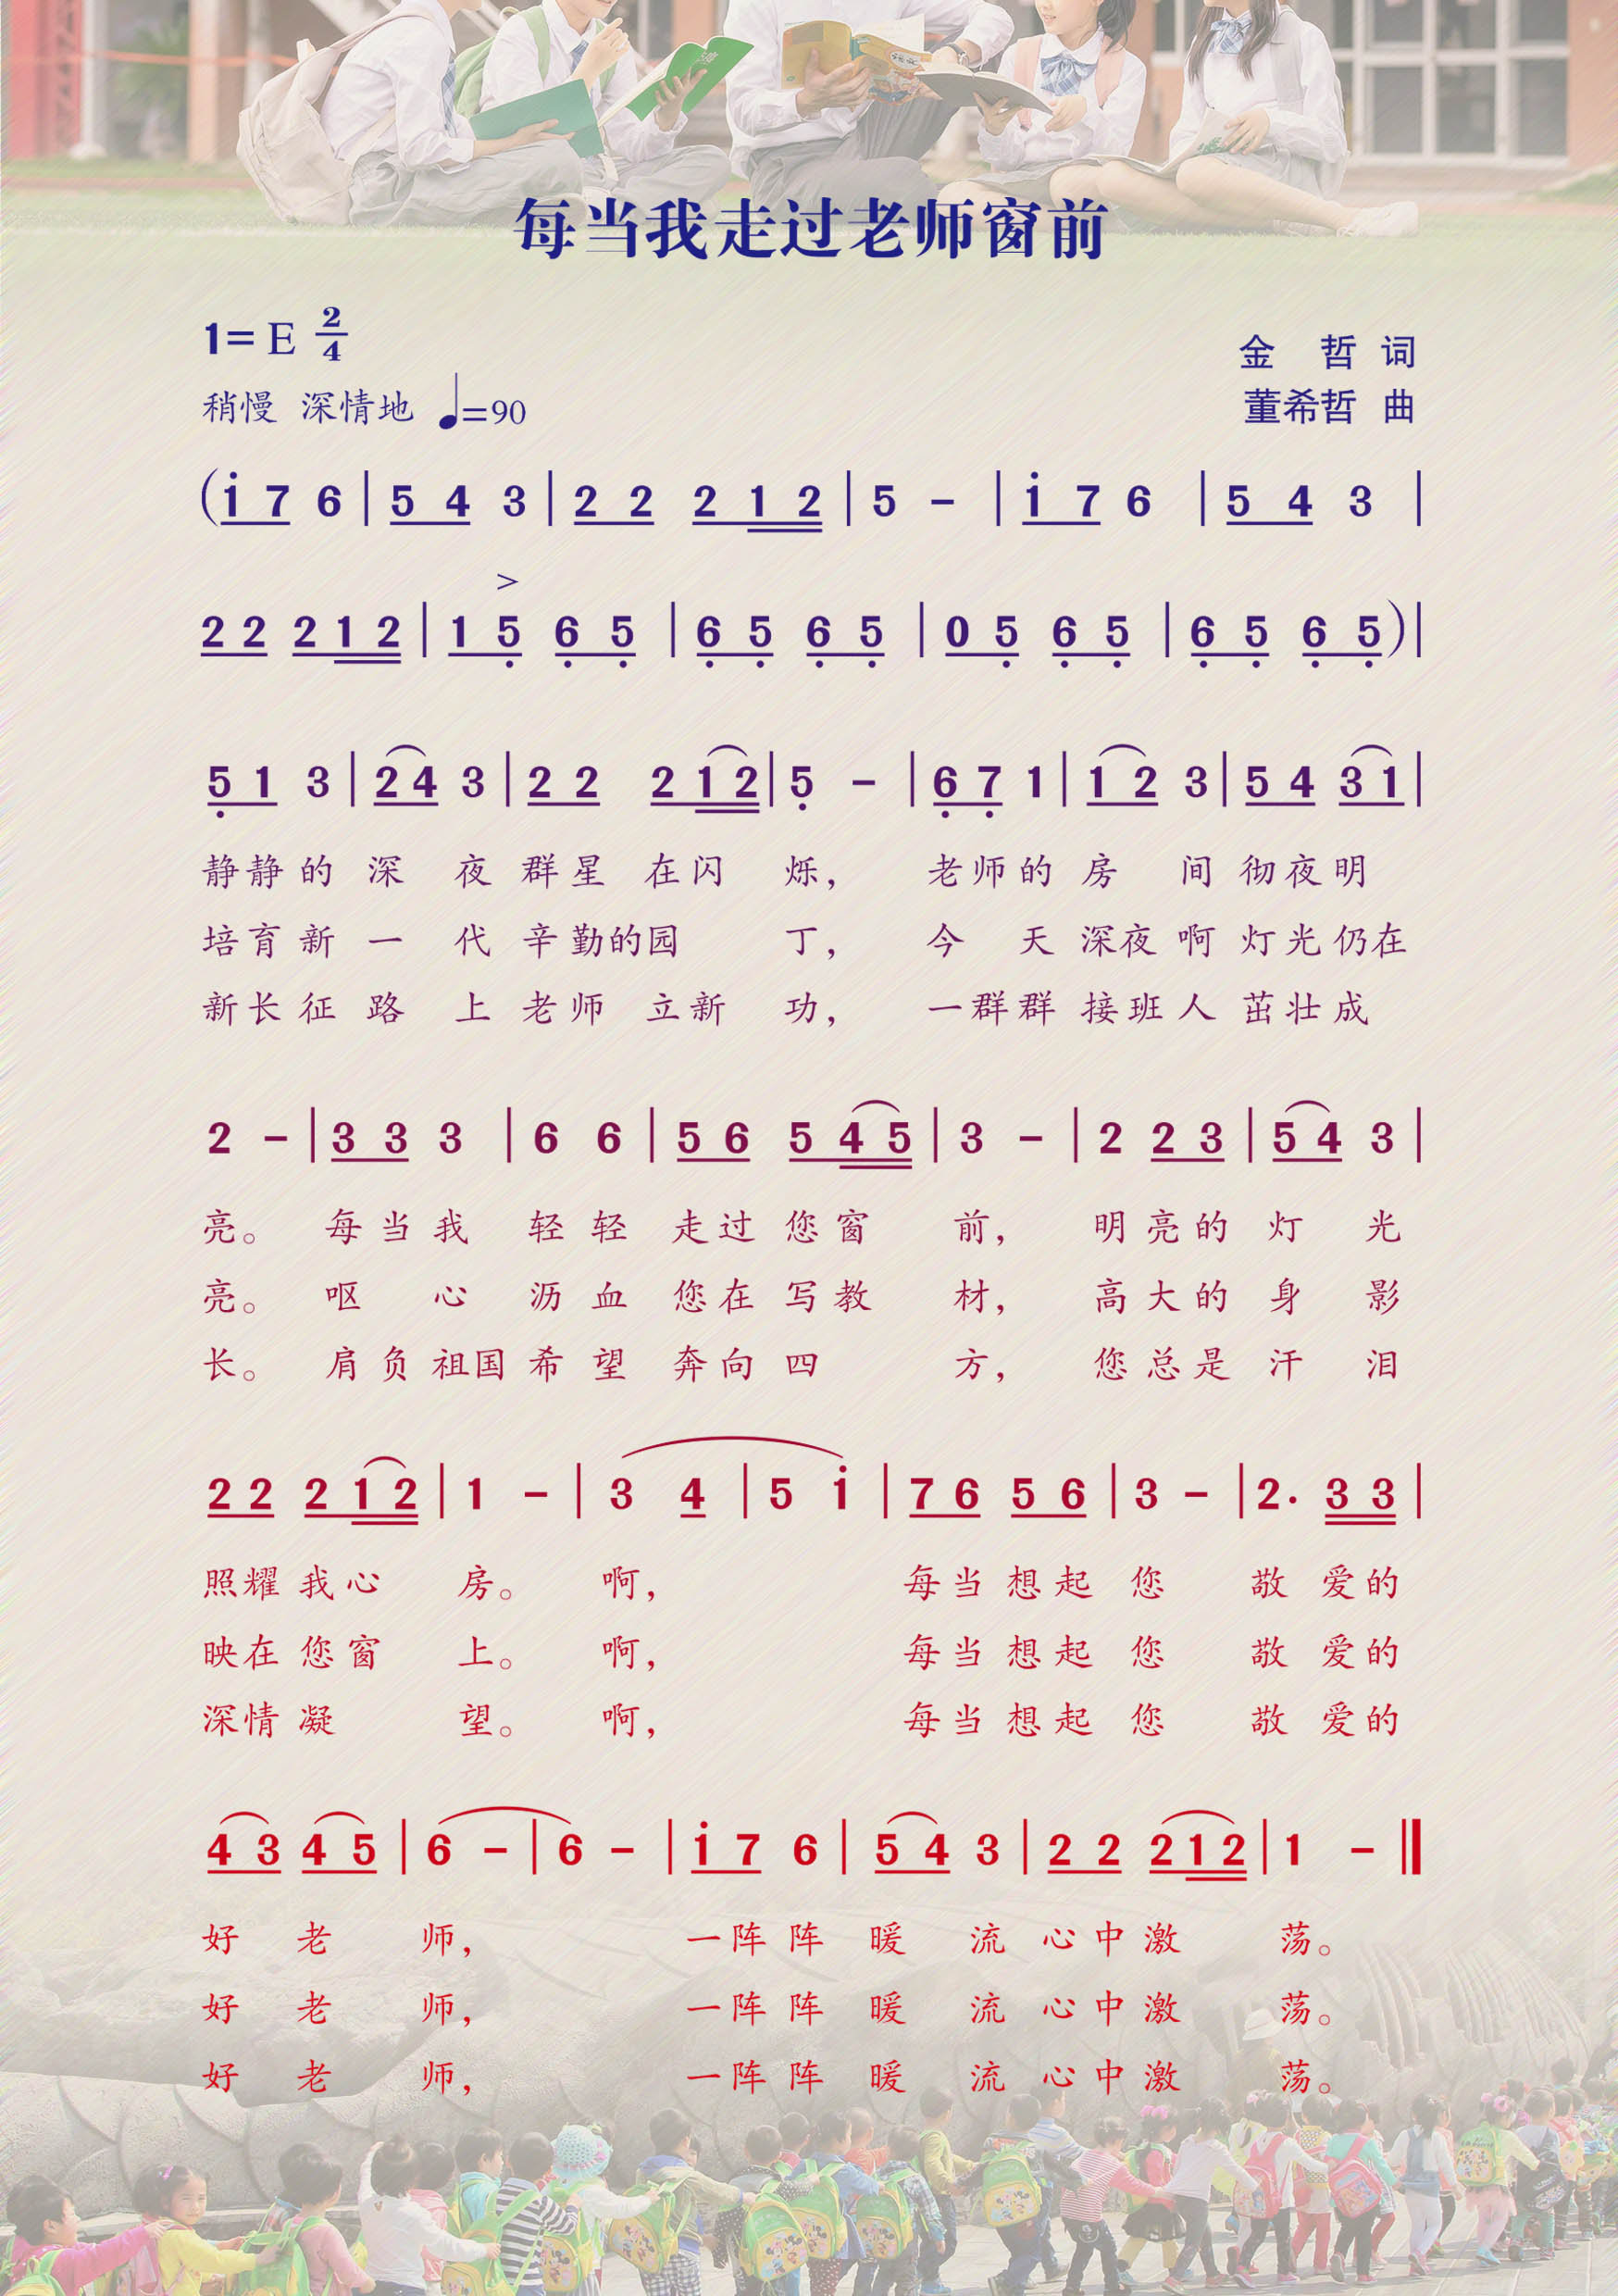 每当我走过老师窗前
1=E 2/4
金 哲 词
稍慢 深情地 ♩=90
董希哲 曲
(i 7 6 | 5 4 3 | 2 2 2 1 2 | 5 - | i 7 6 | 5 4 3 |
>
2 2 2 1 2 | 1 5 6 5 | 6 5 6 5 | 0 5 6 5 | 6 5 6 5)|
5 1 3 | 2 4 3 | 2 2 2 1 2 | 5 - | 6 7 1 | 1 2 3 | 5 4 3 1 |
静静的 深 夜 群星 在闪 烁, 老师的 房 间 彻夜明
培育新 一 代 辛勤的园 丁, 今 天 深夜啊 灯光仍在
新长征 路 上 老师 立新 功, 一群群 接班人 茁壮成
2 - | 3 3 3 | 6 6 | 5 6 5 4 5 | 3 - | 2 2 3 | 5 4 3 |
亮。 每当我 轻轻 走过您窗 前, 明亮的 灯 光
亮。 呕 心 沥血 您在写教 材, 高大的 身 影
长。 肩负祖国 希望 奔向四 方, 您总是 汗 泪
2 2 2 1 2 | 1 - | 3 4 | 5 i | 7 6 5 6 | 3 - | 2. 3 3 |
照耀我心 房。 啊, 每当想起 您 敬 爱的
映在您窗 上。 啊, 每当想起 您 敬 爱的
深情凝 望。 啊, 每当想起 您 敬 爱的
4 3 4 5 | 6 - | 6 - | i 7 6 | 5 4 3 | 2 2 2 1 2 | 1 - ‖
好 老 师, 一阵阵 暖 流 心中激 荡。
好 老 师, 一阵阵 暖 流 心中激 荡。
好 老 师, 一阵阵 暖 流 心中激 荡。